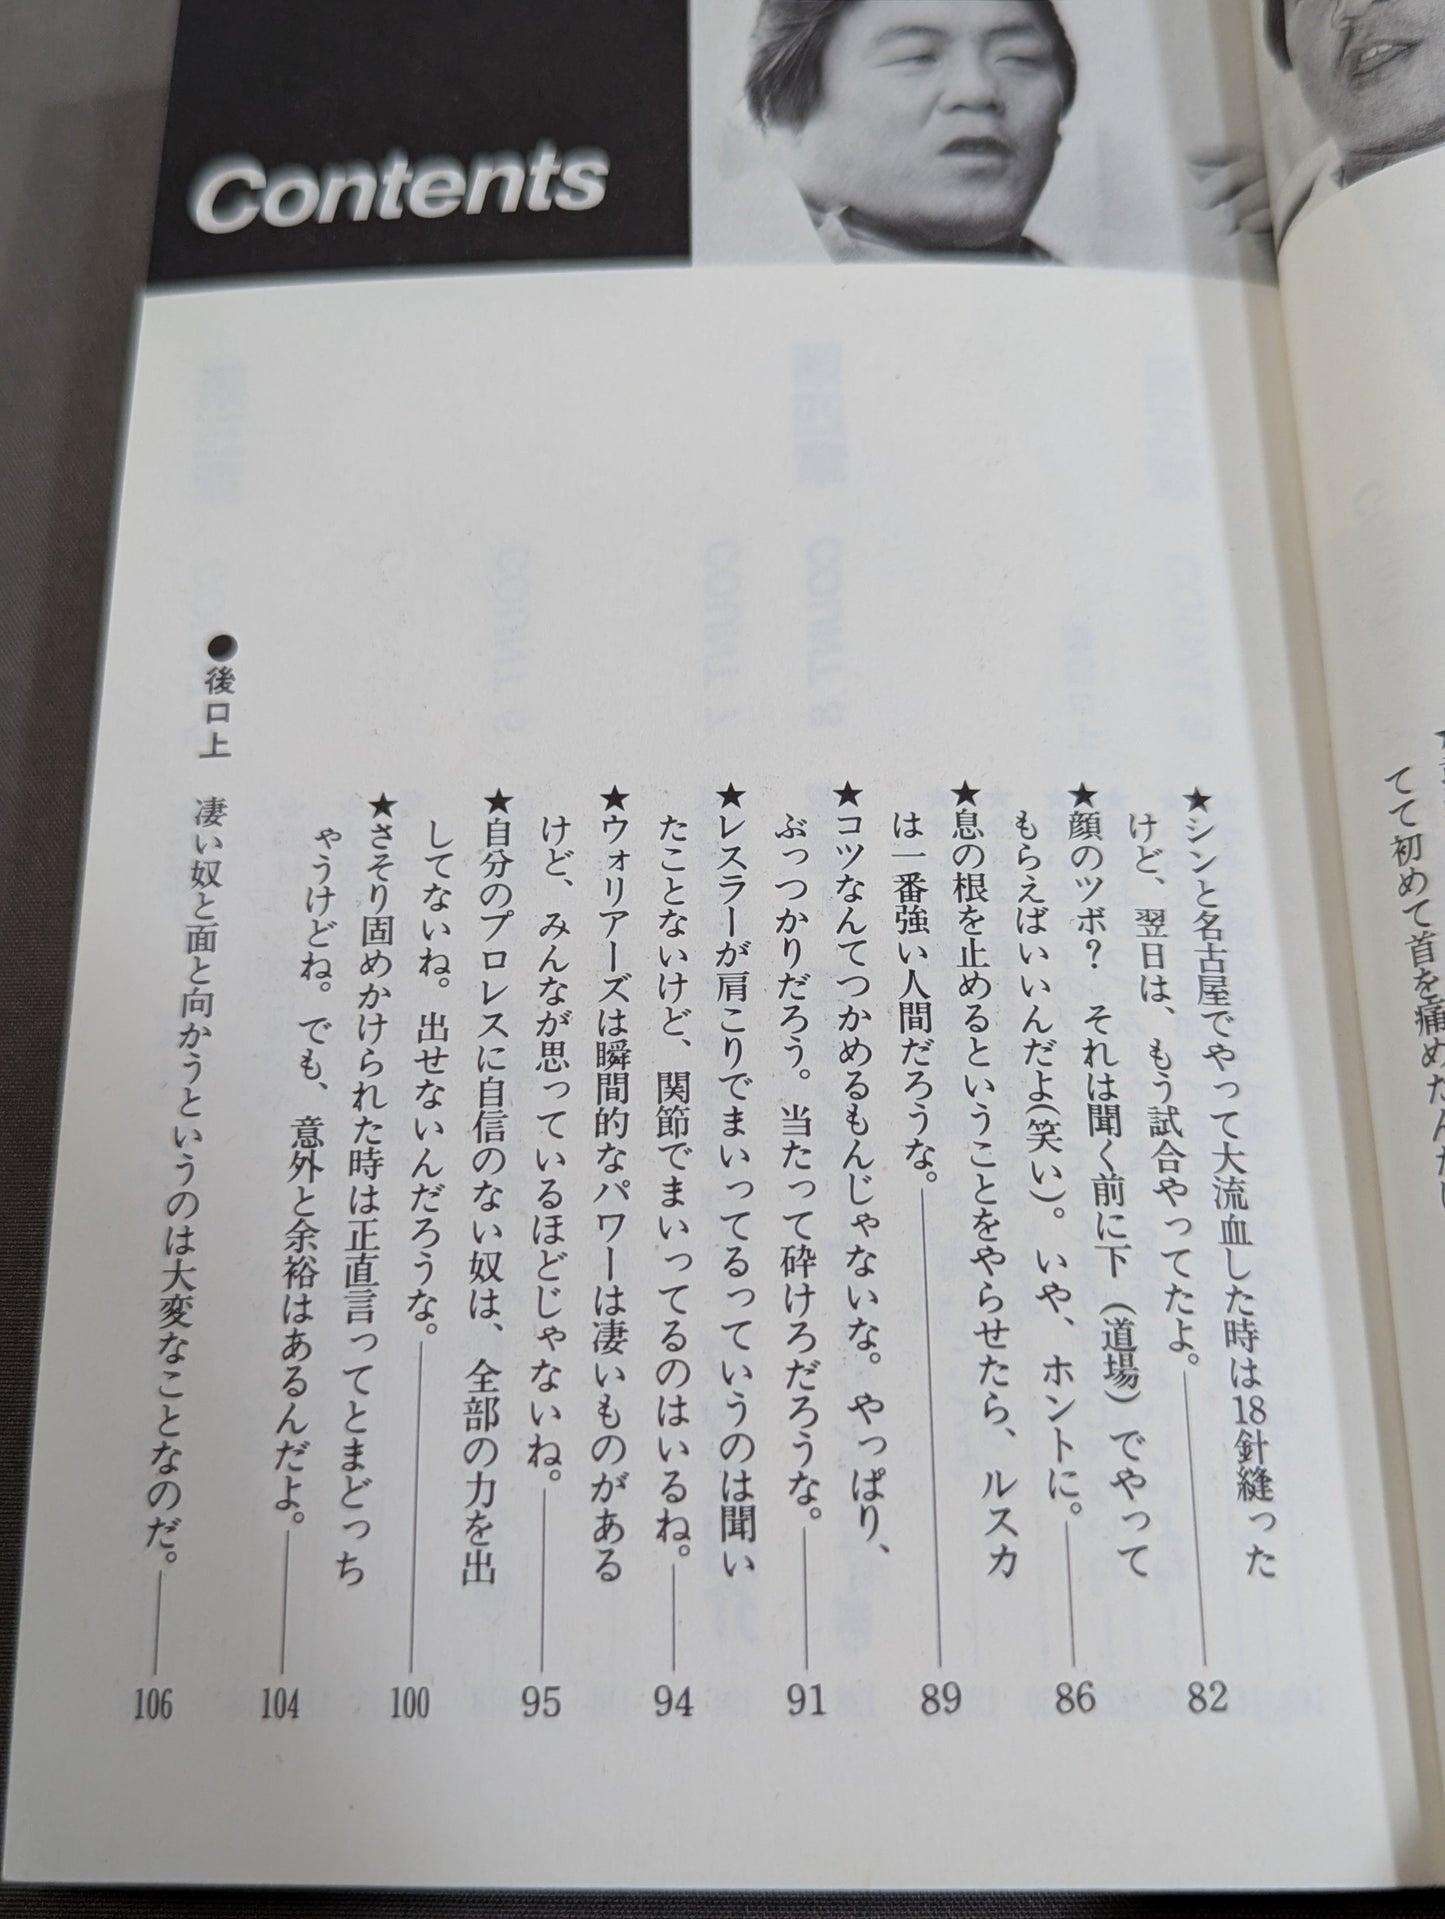 Contents
★シンと名古屋でやって大流血した時は18針縫った
けど、翌日は、もう試合やってたよ。
82
★顔のツボ？　それは聞く前に下（道場）でやって
もらえばいいんだよ（笑い）。いや、ホントに。
86
★息の根を止めるということをやらせたら、ルスカ
は一番強い人間だろうな。
89
★コツなんてつかめるもんじゃないな。やっぱり、
ぶっつかりだろう。当たって砕けろだろうな。
91
★レスラーが肩こりでまいってるっていうのは聞い
たことないけど、関節でまいってるのはいるね。
94
★ウォリアーズは瞬間的なパワーは凄いものがある
けど、みんなが思っているほどじゃないね。
95
★自分のプロレスに自信のない奴は、全部の力を出
してないね。出せないんだろうな。
100
★さそり固めかけられた時は正直言ってとまどっち
ゃうけどね。でも、意外と余裕はあるんだよ。
104
●後口上　凄い奴と面と向かうというのは大変なことなのだ。
106
てて初めて首を痛めたんだ